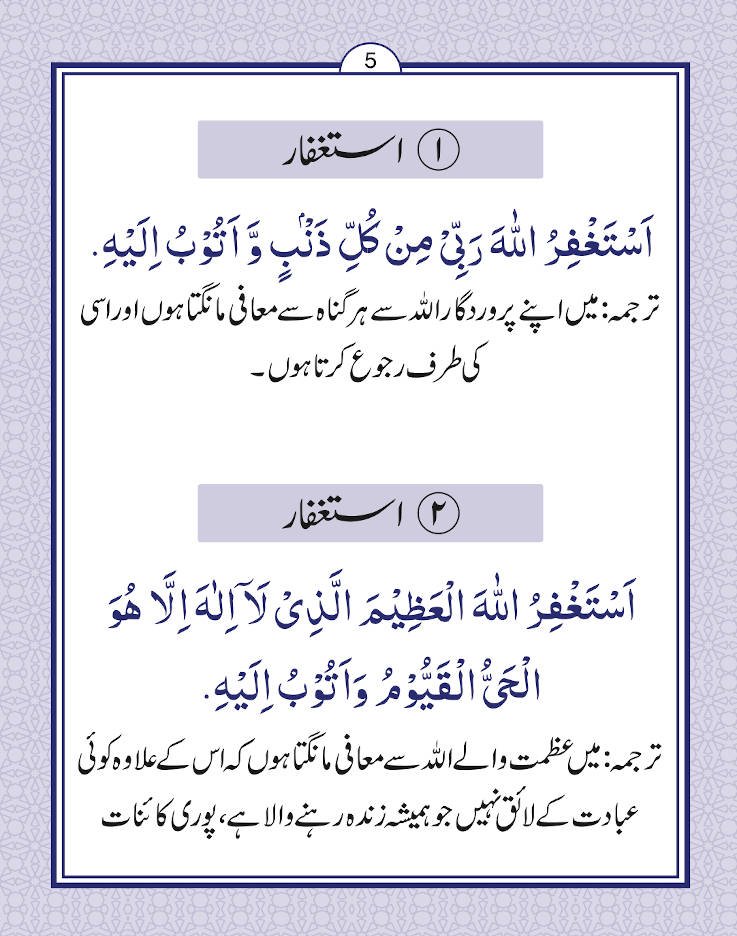 5
۱ استغفار
اَسْتَغْفِرُ اللّٰهَ رَبِّیْ مِنْ کُلِّ ذَنْۢبٍ وَّ اَتُوْبُ اِلَیْهِ.
ترجمہ: میں اپنے پروردگار اللہ سے ہر گناہ سے معافی مانگتا ہوں اور اسی
کی طرف رجوع کرتا ہوں۔
۲ استغفار
اَسْتَغْفِرُ اللّٰهَ الْعَظِیْمَ الَّذِیْ لَآ اِلٰهَ اِلَّا هُوَ
الْحَیُّ الْقَیُّوْمُ وَاَتُوْبُ اِلَیْهِ.
ترجمہ: میں عظمت والے اللہ سے معافی مانگتا ہوں کہ اس کے علاوہ کوئی
عبادت کے لائق نہیں جو ہمیشہ زندہ رہنے والا ہے، پوری کائنات